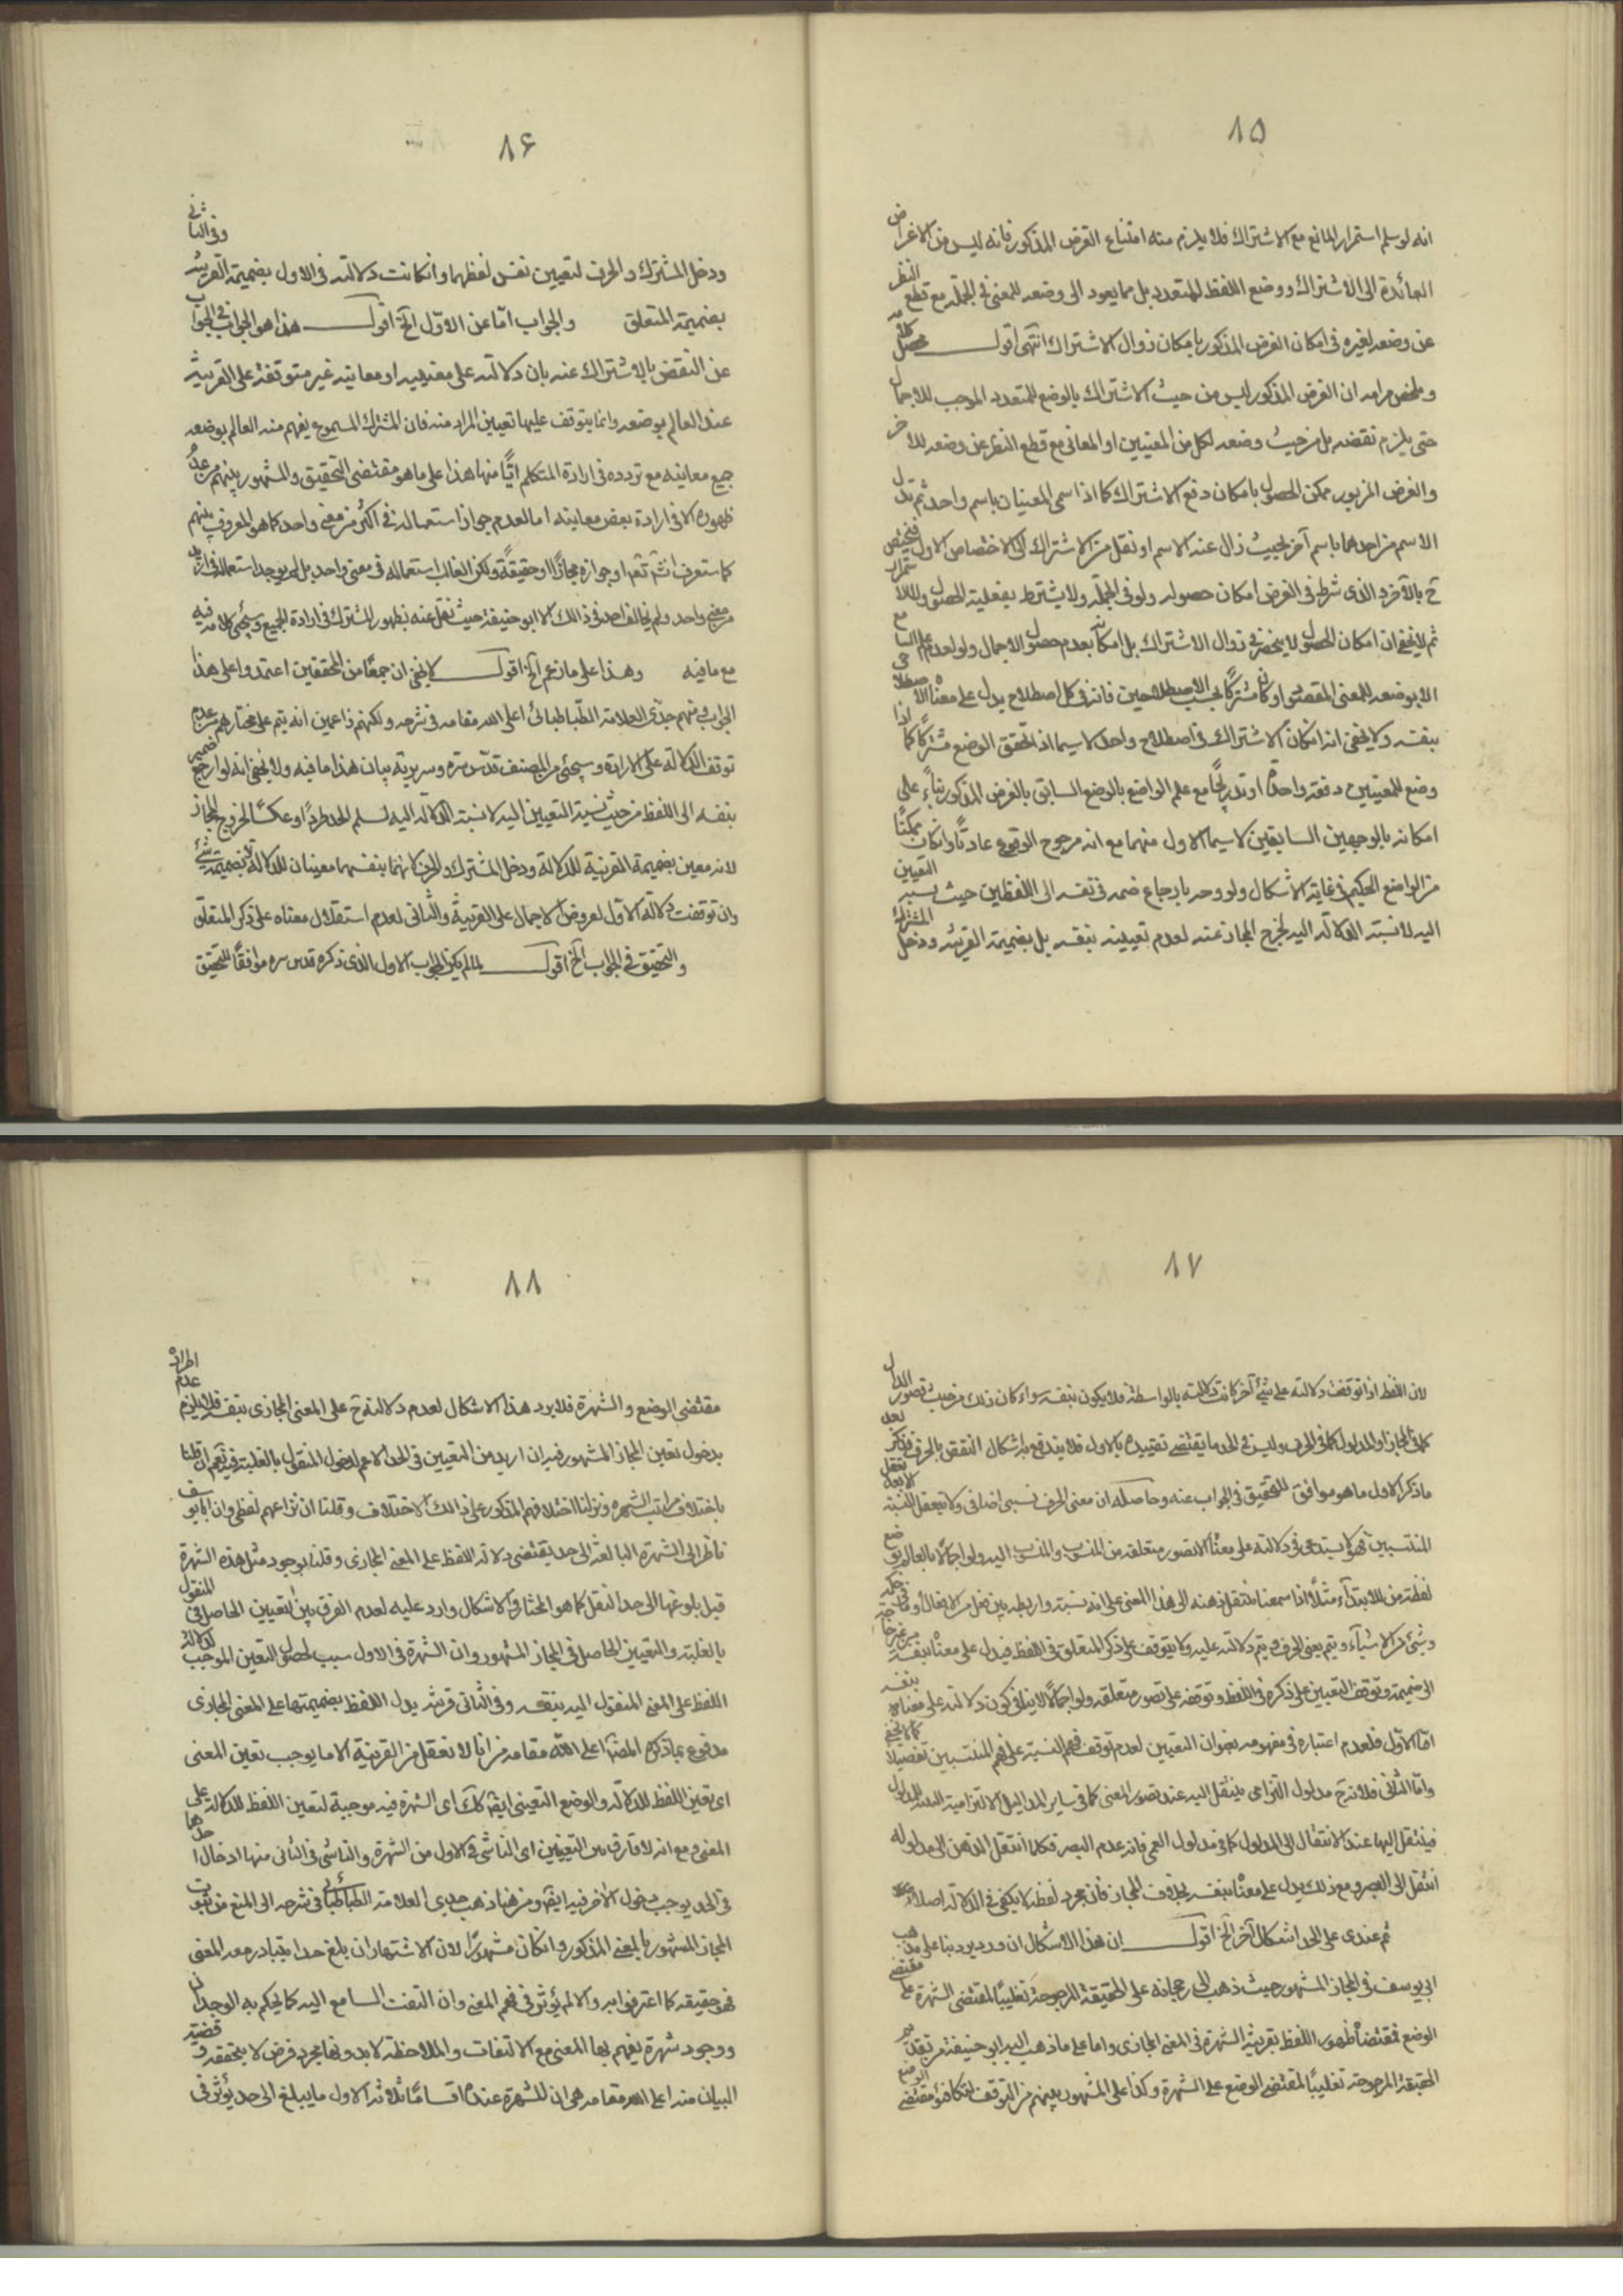 ٨۵
انه لو سلم استمرار المانع مع الاشتراك فلا يلزم منه امتناع الغرض المذكور فانه ليس من الاغراض
العائدة الى الاشتراك ووضع اللفظ للمتعدد بل مما يعود الى وضعه للمعنى فى الجملة مع قطع النظر
عن وضعه لغيره فى امكان الغرض المذكور بامكان زوال الاشتراك انتهى اقول محصل كلامه
وملخص مرامه ان الغرض المذكور ليس من حيث الاشتراك بالوضع للمتعدد الموجب للاجمال
حتى يلزم نقضه بل من حيث وضعه لكل من المعنيين او المعانى مع قطع النظر عن وضعه للاخر
والغرض المزبور ممكن الحصول بامكان دفع الاشتراك كما اذا سمى المعنيان باسم واحد ثم تبدل
الاسم من احدهما باسم آخر بحيث زال عنه الاسم او نقل من الاشتراك الى الاختصاص الاول فيختص
ح بالآخر الذى شرط فى الغرض امكان حصوله ولو فى الجملة ولا يشترط بفعلية الحصول
ثم لا يخفى ان امكان الحصول لا ينحصر فى زوال الاشتراك بل امكانه بعدم حصول الاجمال ولو لعدم علم السامع
الا بوضعه للمعنى المقصود او كان مشتركا بحسب الاصطلاحين فانه فى كل اصطلاح يدل على معناه الاصطلاحى
بنفسه ولا يخفى انه امكان الاشتراك فى اصطلاح واحد لا سيما اذا تحقق الوضع مشتركا كما اذا
وضع للمعنيين دفعة واحدة او تدريجا مع علم الواضع بالوضع السابق بالغرض المذكور بناء على
امكانه بالوجهين السابقين لا سيما الاول منهما مع انه مرجوح الوقوع عادتا وانكان ممكنا
من الواضع الحكيم فى غاية الاشكال ولو وجه بارجاع ضمه فى نفسه الى اللفظ من حيث نسبة التعيين
اليه لا نسبة الدلالة اليه لخرج المجاز عنه لعدم تعيينه بنفسه بل بضميمة القرينة ودخل المشترك
٨۶
ودخل المشترك والحرف لتعيين نفس لفظهما وانكانت دلالته فى الاول بضميمة القرينة وفى الثانى
بضميمة المتعلق والجواب اما عن الاول آلخ اقول هذا هو الجواب فى الجواب
عن النقض بالاشتراك عنه بان دلالته على معنييه او معانيه غير متوقفة على القرينة
عند العالم بوضعه وانما يتوقف عليها تعيين المراد منه فان المشترك المسموع يفهم منه العالم بوضعه
جميع معانيه مع تردده فى ارادة المتكلم ايا منها هذا على ما هو مقتضى التحقيق والمشهور بينهم من عدم
ظهوره الا فى ارادة بعض معانيه اما لعدم جواز استعماله فى اكثر من معنى واحد كما هو المعروف بينهم
كما ستعرف انش تعم او جوازه مجازا او حقيقة ولكن الغالب استعماله فى معنى واحد بل لم يوجد استعماله فى ازيد
من معنى واحد ولم يخالف احد فى ذالك الا ابو حنيفة حيث نقل عنه بظهور المشترك فى ارادة الجميع وسيجئ كلامه فيه
مع ما فيه وهذا على ما زعم آلخ اقول لا يخفى ان جمعا من المحققين اعتمدوا على هذا
الجواب منهم جدى العلامة الطباطبائى اعلى الله مقامه فى شرحه ولكنهم زاعمين انه يتم على مختارهم من عدم
توقف الدلالة على الارادة وسيجئ من المصنف قدس سره وسريرته بيان هذا ما فيه ولا يخفى انه لو ارجع ضمير
بنفسه الى اللفظ من حيث نسبة التعيين اليه لا نسبة الدلالة اليه لسلم الحد طردا وعكسا لخروج المجاز
لانه معين بضميمة القرينة للدلالة ودخل المشترك والحرف لانهما بنفسهما معينان للدلالة لا بضميمة شئ
وان توقفت دلالة الاول لعروض الاجمال على القرينة والثانى لعدم استقلال معناه على ذكر المتعلق
والتحقيق فى الجواب آلخ اقول لما لم يكن الجواب الاول الذى ذكره قدس سره موافقا للتحقيق
٨٧
لان اللفظ اذا توقفت دلالته على شئ آخر كانت دلالته بالواسطة فلا يكون بنفسه سواء كان ذلك من حيث تصور الدال
كما فى المجاز او المدلول كما فى الحرف وليس فى الحد ما يقتضى تقييده بالاول فلا يندفع به اشكال النقض بالحرف فذكر بعد
ما ذكر الاول ما هو موافق للتحقيق فى الجواب عنه وحاصله ان معنى الحرف نسبى اضافى ولا يتعقل النسبة الا بعد تعقل
المنتسبين فهو لا يستدعى فى دلالته على معناه الا تصور متعلقه من المنسوب والمنسوب اليه ولو اجمالا فالعالم بوضع
لفظة من للابتداء مثلا اذا سمعها ينتقل ذهنه الى هذا المعنى على انه نسبة ورابطة بين فعل من الافعال
وشئ من الاشياء ويتم معنى الحرف ويتم دلالته عليه ولا يتوقف على ذكر المتعلق فى اللفظ فيدل على معناه بنفسه من غير حاجة
الى ضميمة وتوقف التعيين على ذكره فى اللفظ وتوقفه على تصور متعلقه ولو اجمالا لا ينافى كون دلالته على معناه بنفسه
اما الاول فلعدم اعتباره فى مفهومه بعنوان التعيين لعدم توقف فهم النسبة على فهم المنتسبين تفصيلا كما لا يخفى
واما الثانى فلانه ح مدلول التزامى ينتقل اليه عند تصور المعنى كما فى ساير المداليل الالتزامية
فينتقل اليها عند الانتقال الى المدلول كما فى مدلول العمى فانه عدم البصر فكلما انتقل الذهن الى مدلوله
انتقل الى البصر ومع ذلك يدل على معناه بنفسه بخلاف المجاز فان مجرد لفظه لا يكفى فى الدلالة اصلا
ثم عندى على الحد اشكال آخر آلخ اقول ان هذا الاشكال ان ورد يرد بناء على مذهب
ابى يوسف فى المجاز المشهور حيث ذهب الى رجحانه على الحقيقة المرجوحة تغليبا لمقتضى الشهرة على مقتضى
الوضع فمقتضاه ظهور اللفظ بقرينة الشهرة فى المعنى المجازى واما على ما ذهب اليه ابو حنيفة من تقديم
الحقيقة المرجوحة تغليبا لمقتضى الوضع على الشهرة وكذا على المشهور بينهم من التوقف لتكافؤ مقتضى الوضع
٨٨
مقتضى الوضع والشهرة فلا يرد هذا الاشكال لعدم دلالته ح على المعنى المجازى بنفسه فلا يلزم عدم اطراده
بدخول تعين المجاز المشهور فيه ان اريد من التعيين فى الحد الاعم لدخول المنقول بالغلبة فيه نعم ان قلنا
باختلاف مراتب الشهرة ونزلنا اختلافهم المذكور على ذالك الاختلاف وقلنا ان نزاعهم لفظى وان ابا يوسف
ناظر الى الشهرة البالغة الى حد يقتضى دلالة اللفظ على المعنى المجازى وقلنا بوجود مثل هذه الشهرة
قبل بلوغها الى حد النقل كما هو المختار فالاشكال وارد عليه لعدم الفرق بين التعيين الحاصل فى المنقول
بالغلبة والتعيين الحاصل فى المجاز المشهور وان الشهرة فى الاول سبب لحصول التعين الموجب لدلالة
اللفظ على المعنى المنقول اليه بنفسه وفى الثانى قرينة يدل اللفظ بضميمتها على المعنى المجازى
مدفوع بما ذكره المصنف اعلى الله مقامه من انا لا نعقل من القرينة الا ما يوجب تعين المعنى
اى تعين اللفظ للدلالة والوضع التعينى ايضا كك اى الشهرة فيه موجبة لتعين اللفظ للدلالة على
المعنى ومع انه لا فارق بين التعيينين اى الناشى فى الاول من الشهرة والناشى فى الثانى منها ادخال احدهما
فى الحد يوجب دخول الاخر فيه ايضا ومن هنا ذهب جدى العلامة الطباطبائى فى شرحه الى المنع من ثبوت
المجاز المشهور بالمعنى المذكور وانكان مشهورا لان الاشتهار ان بلغ حدا يتبادر معه المعنى
فهو حقيقة كما اعترفوا به والا لم يؤثر فى فهم المعنى وان التفت السامع اليه كما يحكم به الوجدان
ووجود شهرة يفهم بها المعنى مع الالتفات والملاحظة لا بدونها مجرد فرض لا يتحقق
البيان منه اعلى الله مقامه هى ان للشهرة عنده اقساما ثلاثة الاول ما يبلغ الى حد يؤثر فى